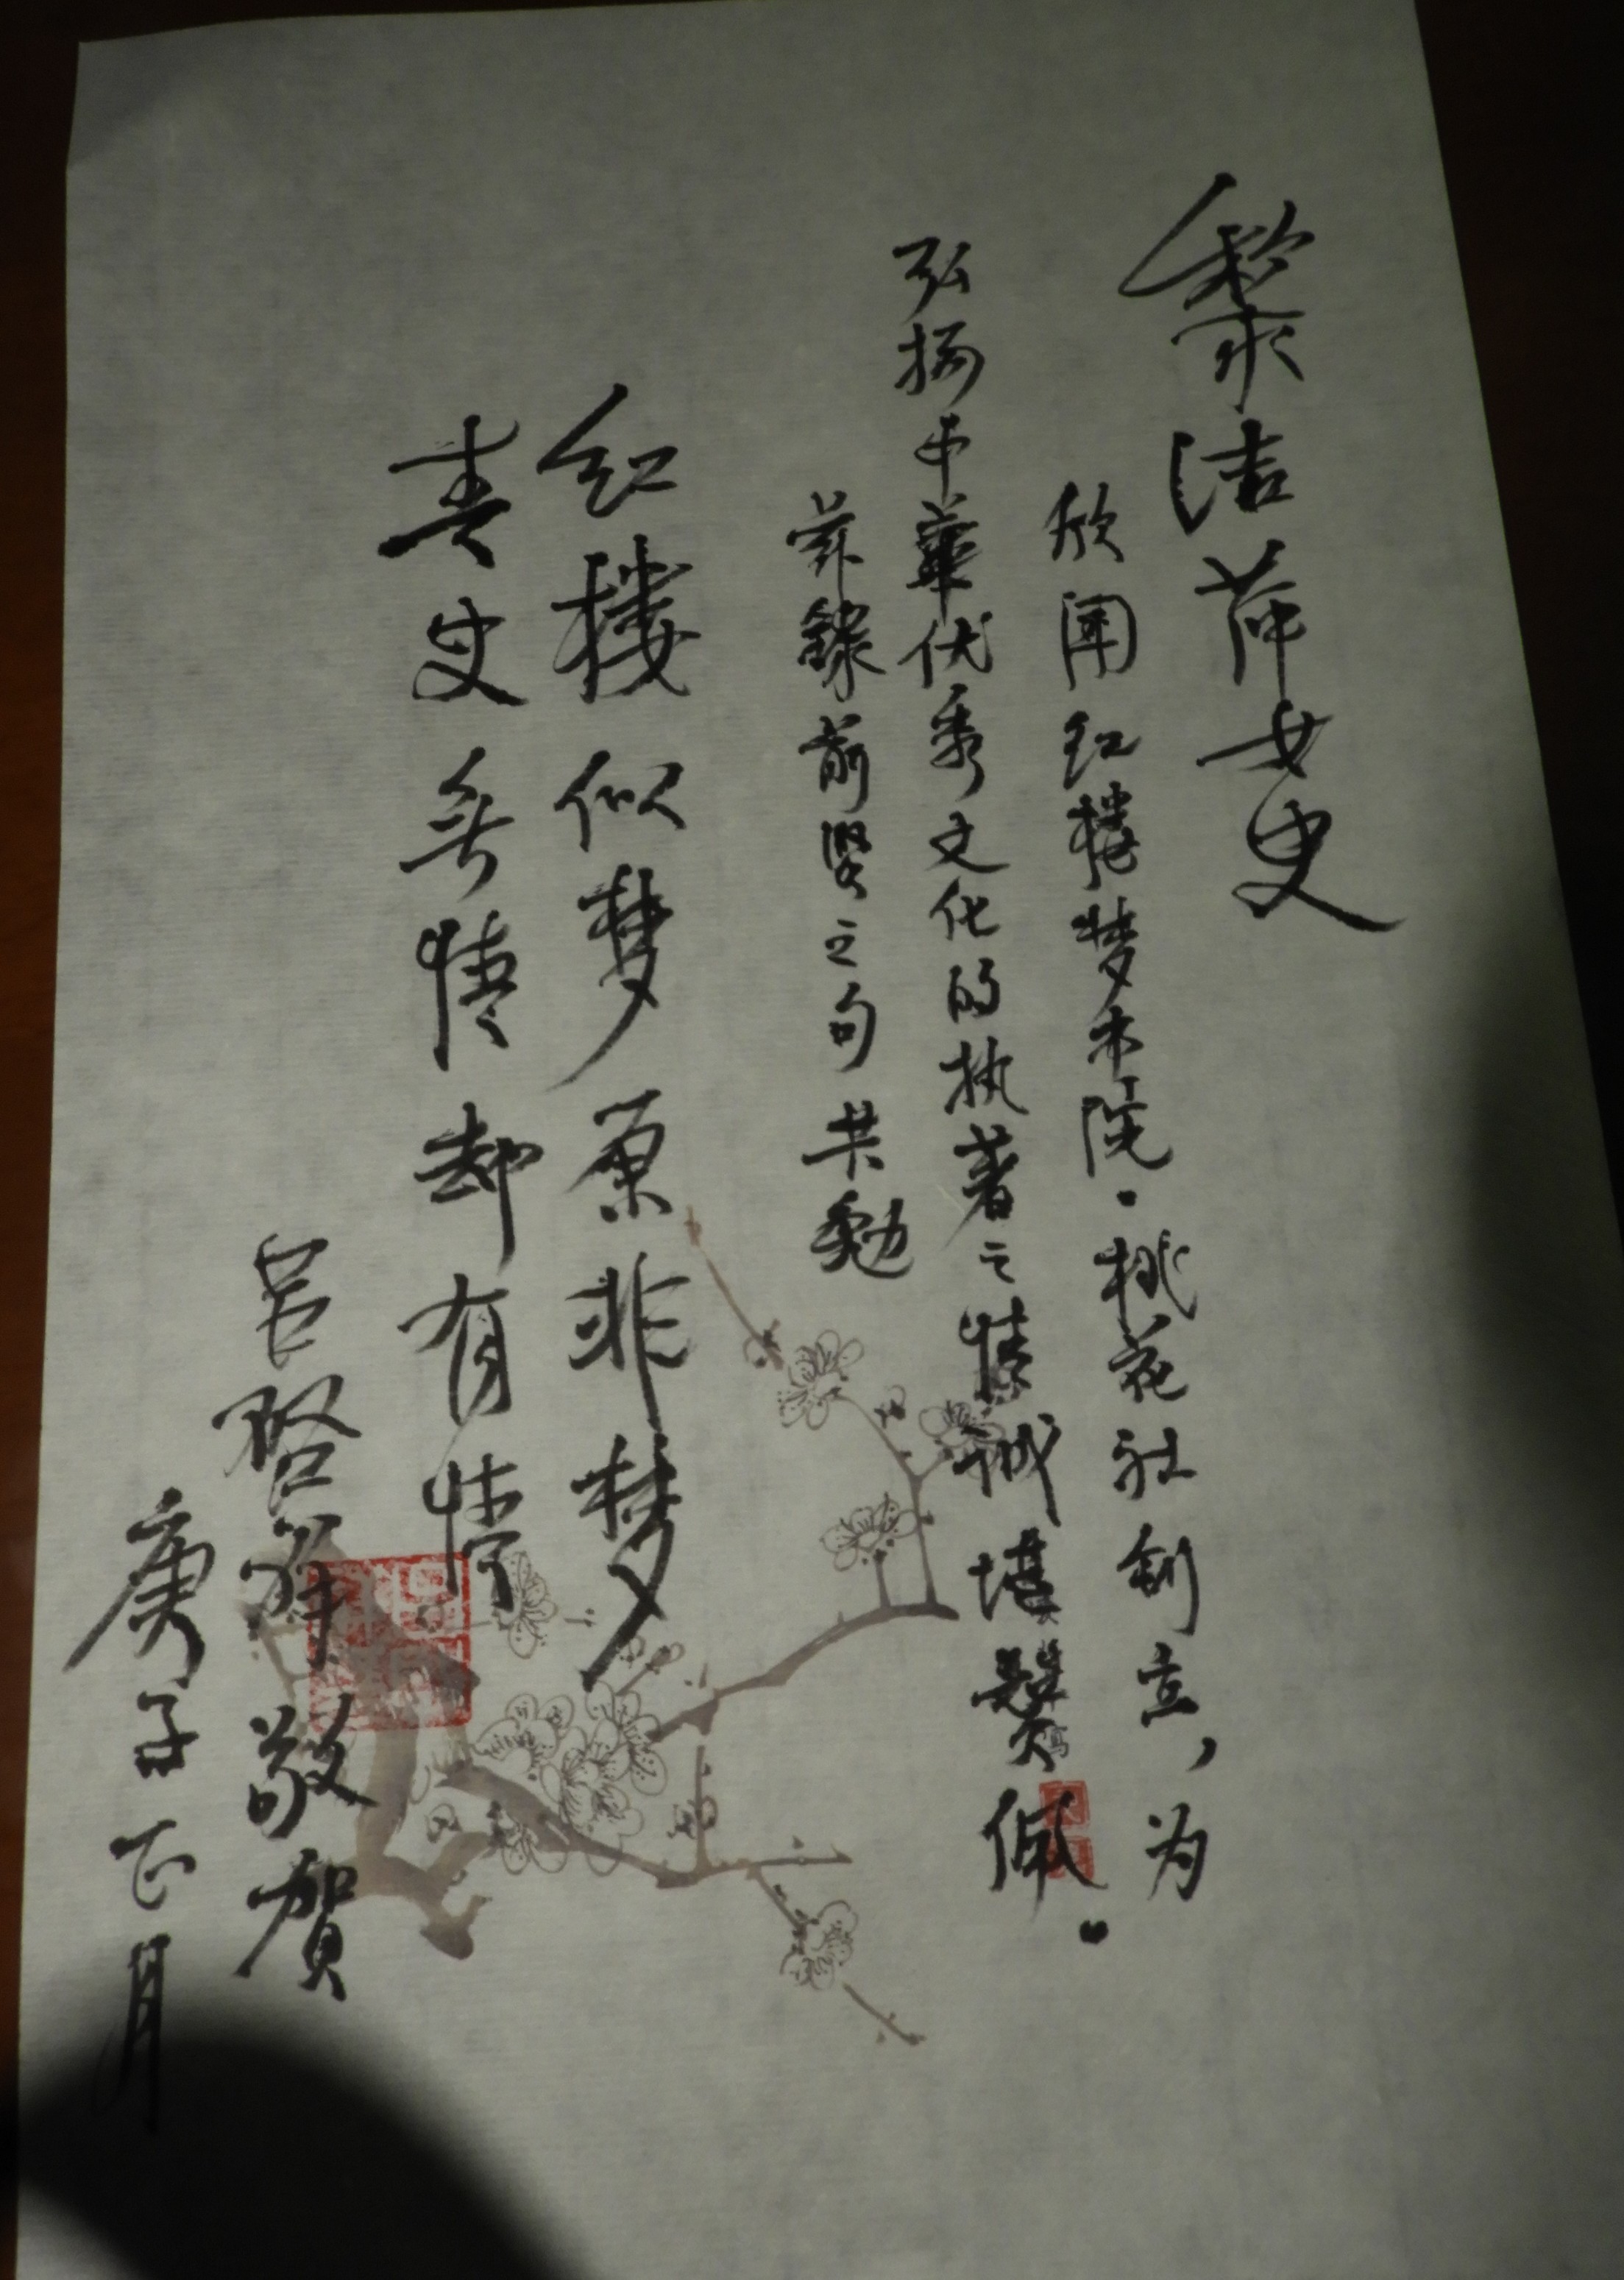 黎洁萍女史
欣闻红楼梦书院·桃花社创立，为
弘扬中华优秀文化的执著之情诚堪赞佩。
兹录前贤之句共勉
红楼似梦原非梦
青史无情却有情
吕启祥敬贺
庚子正月